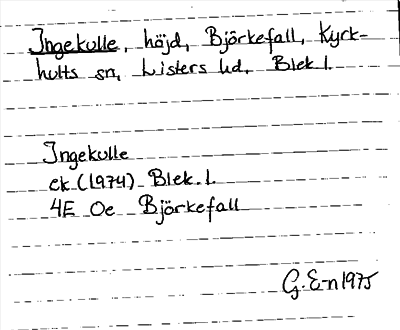 Ingekulle, höjd, Björkefall, Kyrk-
hults sn, Listers hd, Blek l.
Ingekulle
ek (1974) Blek. l.
4E 0e Björkefall
G. E-n 1975